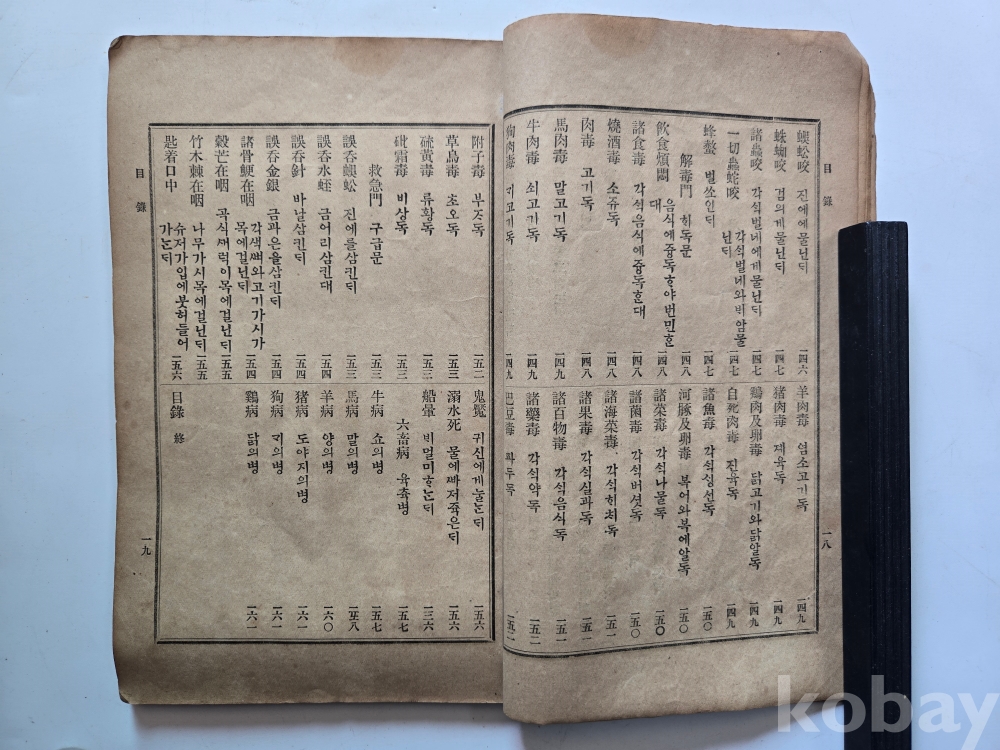 目錄
蜈蚣咬 진에에물닌듸 一四六
蛛蜘咬 검의게물닌듸 一四七
諸蟲咬 각석벌네에게물닌듸 一四七
一切蟲蛇咬 각석벌네와비암물닌듸 一四七
蜂螫 벌쏘인듸 一四七
解毒門 히독문 一四八
飮食煩悶 음식에즁독ᄒᆞ야번민ᄒᆞᆫ대 一四八
諸食毒 각석음식에즁독ᄒᆞᆫ대 一四八
燒酒毒 소쥬독 一四八
肉毒 고기독 一四八
馬肉毒 말고기독 一四九
牛肉毒 쇠고기독 一四九
狗肉毒 기고기독 一四九
羊肉毒 염소고기독 一四九
猪肉毒 졔육독 一四九
鷄肉及卵毒 닭고기와닭알독 一四九
自死肉毒 진육독 一四九
諸魚毒 각석싱션독 一五〇
河豚及卵毒 복어와복에알독 一五〇
諸菜毒 각석나물독 一五〇
諸菌毒 각석버셧독 一五〇
諸海菜毒 각석ᄒᆡ치독 一五一
諸果毒 각석실과독 一五一
諸百物毒 각석음식독 一五一
諸藥毒 각석약독 一五二
巴豆毒 파두독 一五二
一八
目錄
附子毒 부ᄌᆞ독 一五二
草烏毒 초오독 一五三
硫黃毒 류황독 一五三
砒霜毒 비상독 一五三
救急門 구급문 一五三
誤呑蜈蚣 진에를삼킨듸 一五三
誤呑水蛭 금어리삼킨대 一五四
誤呑針 바날삼킨듸 一五四
誤呑金銀 금과은을삼킨듸 一五四
諸骨鯁在咽 각색ᄲᅧ와고기가시가목에걸닌듸 一五四
穀芒在咽 곡식ᄭᅥ럭이목에걸닌듸 一五五
竹木棘在咽 나무가시목에걸닌듸 一五五
匙着口中 슈져가입에붓허들어가ᄂᆞᆫ듸 一五六
鬼魘 귀신에게눌ᄂᆞᆫ듸 一五六
溺水死 물에ᄲᅡ저쥭은듸 一五六
船暈 ᄇᆡ멀미ᄒᆞᄂᆞᆫ듸 一三六
六畜病 육츅병 一五七
牛病 쇼의병 一五七
馬病 말의병 一五八
羊病 양의병 一六〇
猪病 도야지의병 一六一
狗病 기의병 一六一
鷄病 닭의병 一六一
目錄 終
一九
kobay